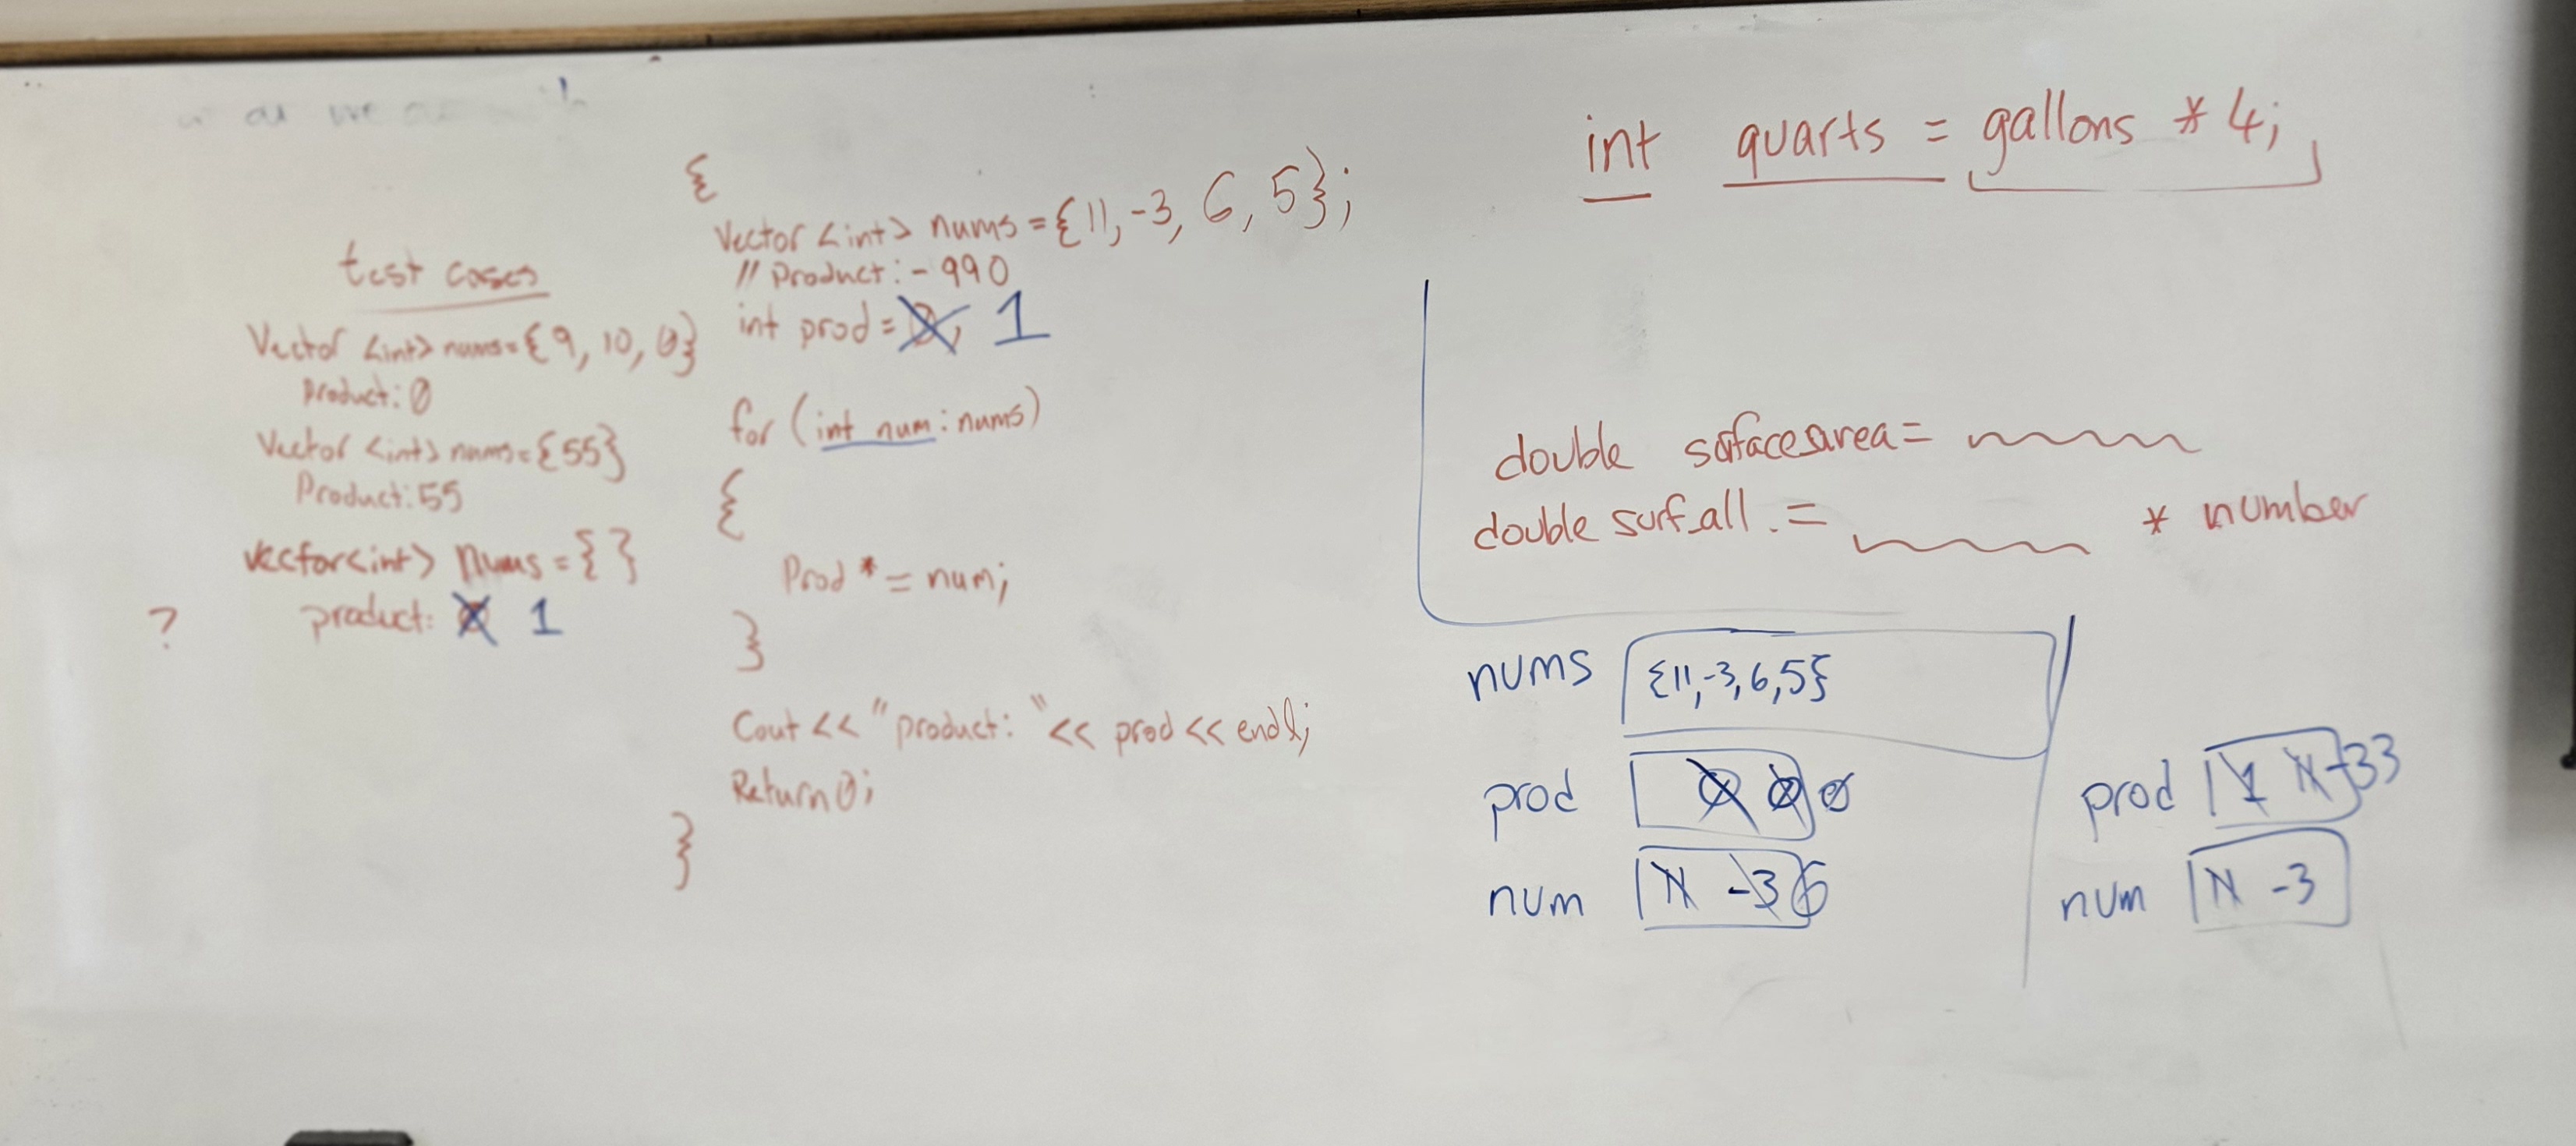 test cases
Vector <int> nums={9, 10, 0}
Product: 0
Vector <int> nums={55}
Product: 55
vector<int> nums={ }
? product: 0 1
{
Vector <int> nums = {11, -3, 6, 5};
// Product: -990
int prod = 0; 1
for (int num : nums)
{
Prod *= num;
}
Cout << "product: " << prod << endl;
Return 0;
}
int quarts = gallons * 4;
double surfacearea =
double surf_all . = * number
nums {11,-3,6,5}
prod 0 0 0
num 11 -3 6
prod 1 11 -33
num 11 -3